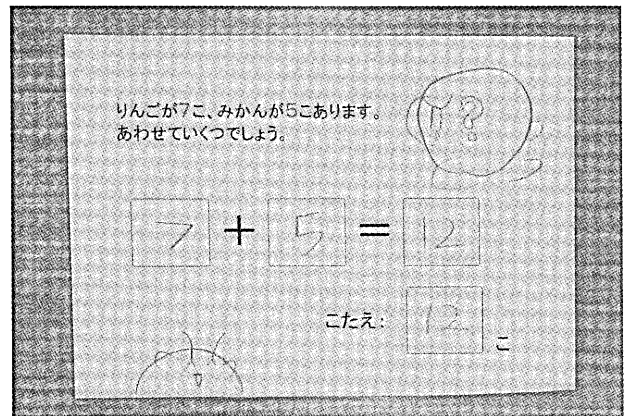 りんごが7こ、みかんが5こあります。
あわせていくつでしょう。
?
7 + 5 = 12
こたえ: 12 こ